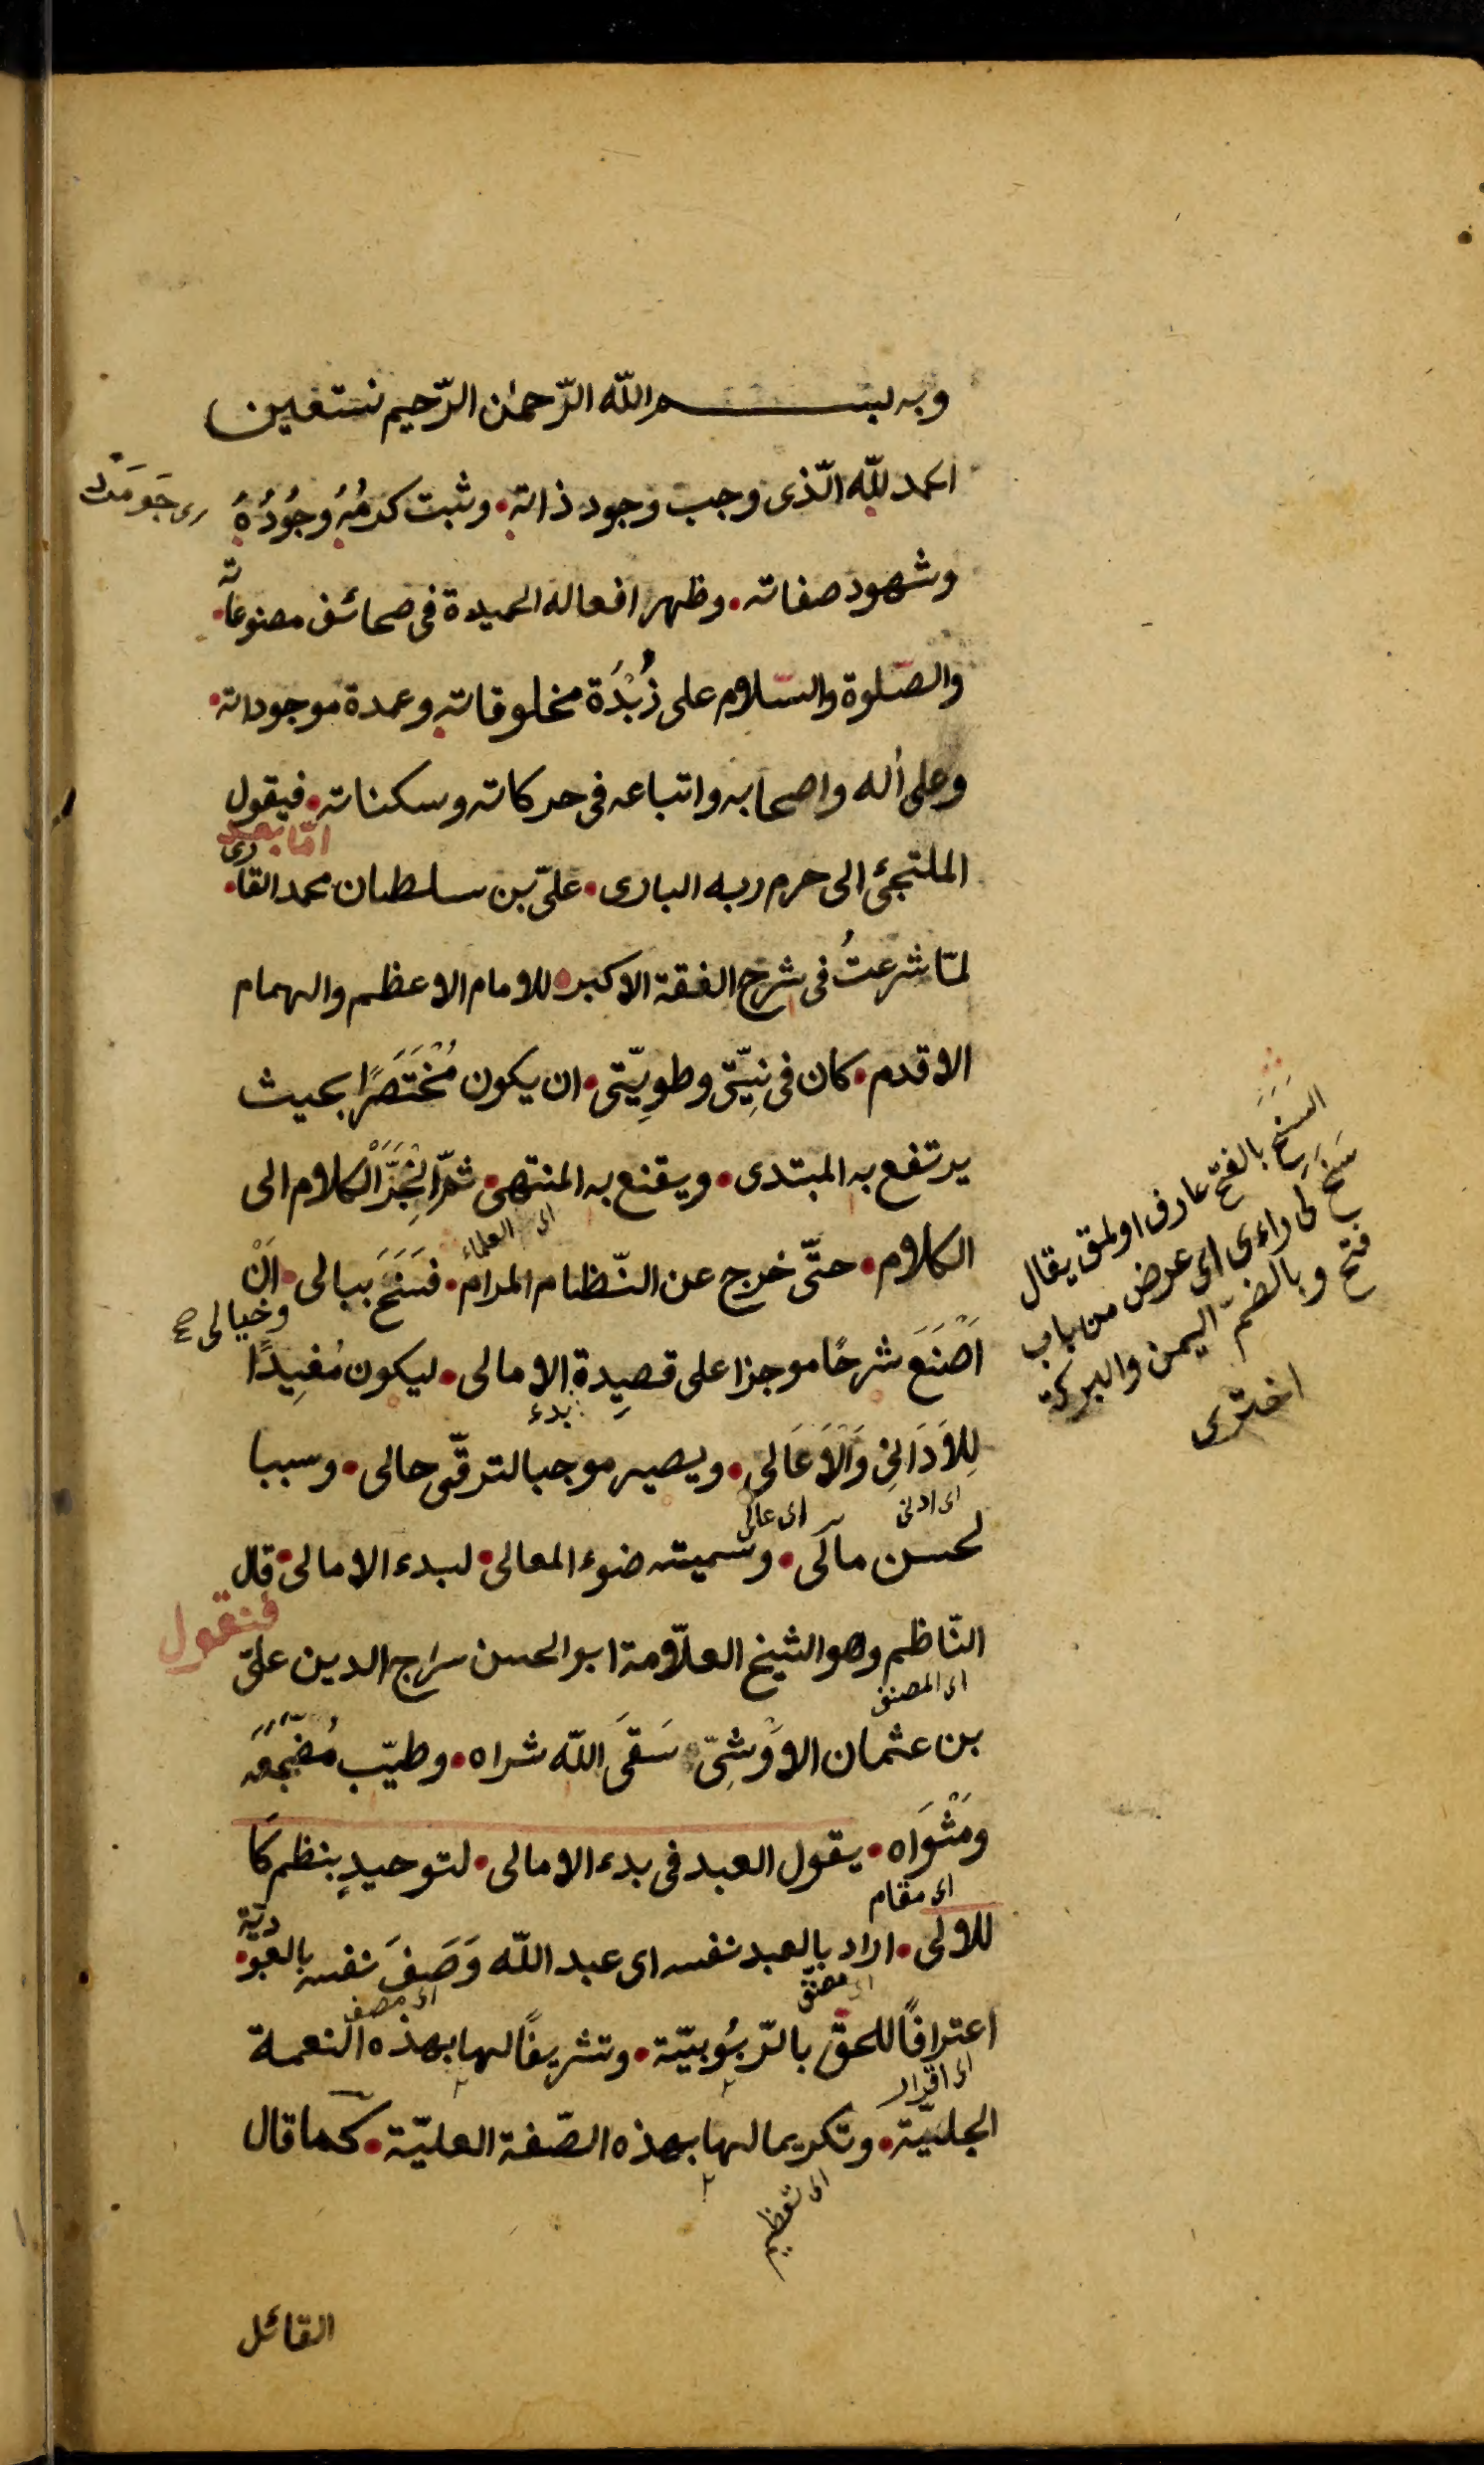 وبه بسم الله الرّحمن الرّحيم نستعين
الحمد لله الّذى وجب وجود ذاته • وثبت كرمُهُ وجُودُهُ
وشهود صفاته • وظهر افعاله الحميدة فى صحائف مصنوعاته •
والصّلوة والسّلام على زُبْدَة مخلوقاته وعمدة موجوداته •
وعلى أله واصحابه واتباعه فى حركاته وسكناته • فيقول
امّا بعد
الملتجئ الى حرم ربه البارى • علىّ بن سلطان محمد القارى •
لمّا شرعتُ فى شرح الفقه الاكبر • للامام الاعظم والهمام
الاقدم • كان فى نِيّتى وطوِيّتى • ان يكون مُخْتَصَرًا بحيث
يرتفع به المبتدى • ويقنع به المنتهى • ثمّ انْجَرَّ الكلام الى
اى العلماء
الكلام • حتّى خرج عن النّظام المرام • فسَنَحَ ببالى • اَنْ
وخيالى صح
اَصْنَعَ شرحًا موجزا على قصيدة الامالى • ليكون مُفيدًا
بدء
لِلاَدَانِى وَالْاَعَالى • ويصير موجبا لترقّى حالى • وسببا
اى ادنى
اى عالى
لحسن مآلى • وسميته ضوء المعالى • لبدء الامالى • قال
فنقول
النّاظم وهو الشيخ العلّامة ابو الحسن سراج الدين علىّ
اى المصنف
بن عثمان الاوْشِىّ • سَقَى الله ثراه • وطيّب مُضْجَعَه
ومَثْوَاه • يقول العبد فى بدء الامالى • لتوحيدٍ بنظم كا
اى مقام
للالى • اراد بالعبد نفسه اى عبد الله وَصَفَ نفسه بالعبودية •
اى مصنف
اى مصنف
اعترافًا للحقّ بالرّبوُبيّة • وتشريفًا لها بهذه النعمة
اى اقرار
الجليّة • وتكريما لها بهذه الصّفة العليّة • كما قال
اى تعظيم
القائل
السَنَحَ بالفتح عارف اولمق يقال
سَنَحَ لى راءى اى عرض من باب
فتح وبالضم اليمن والبركة
اخترى